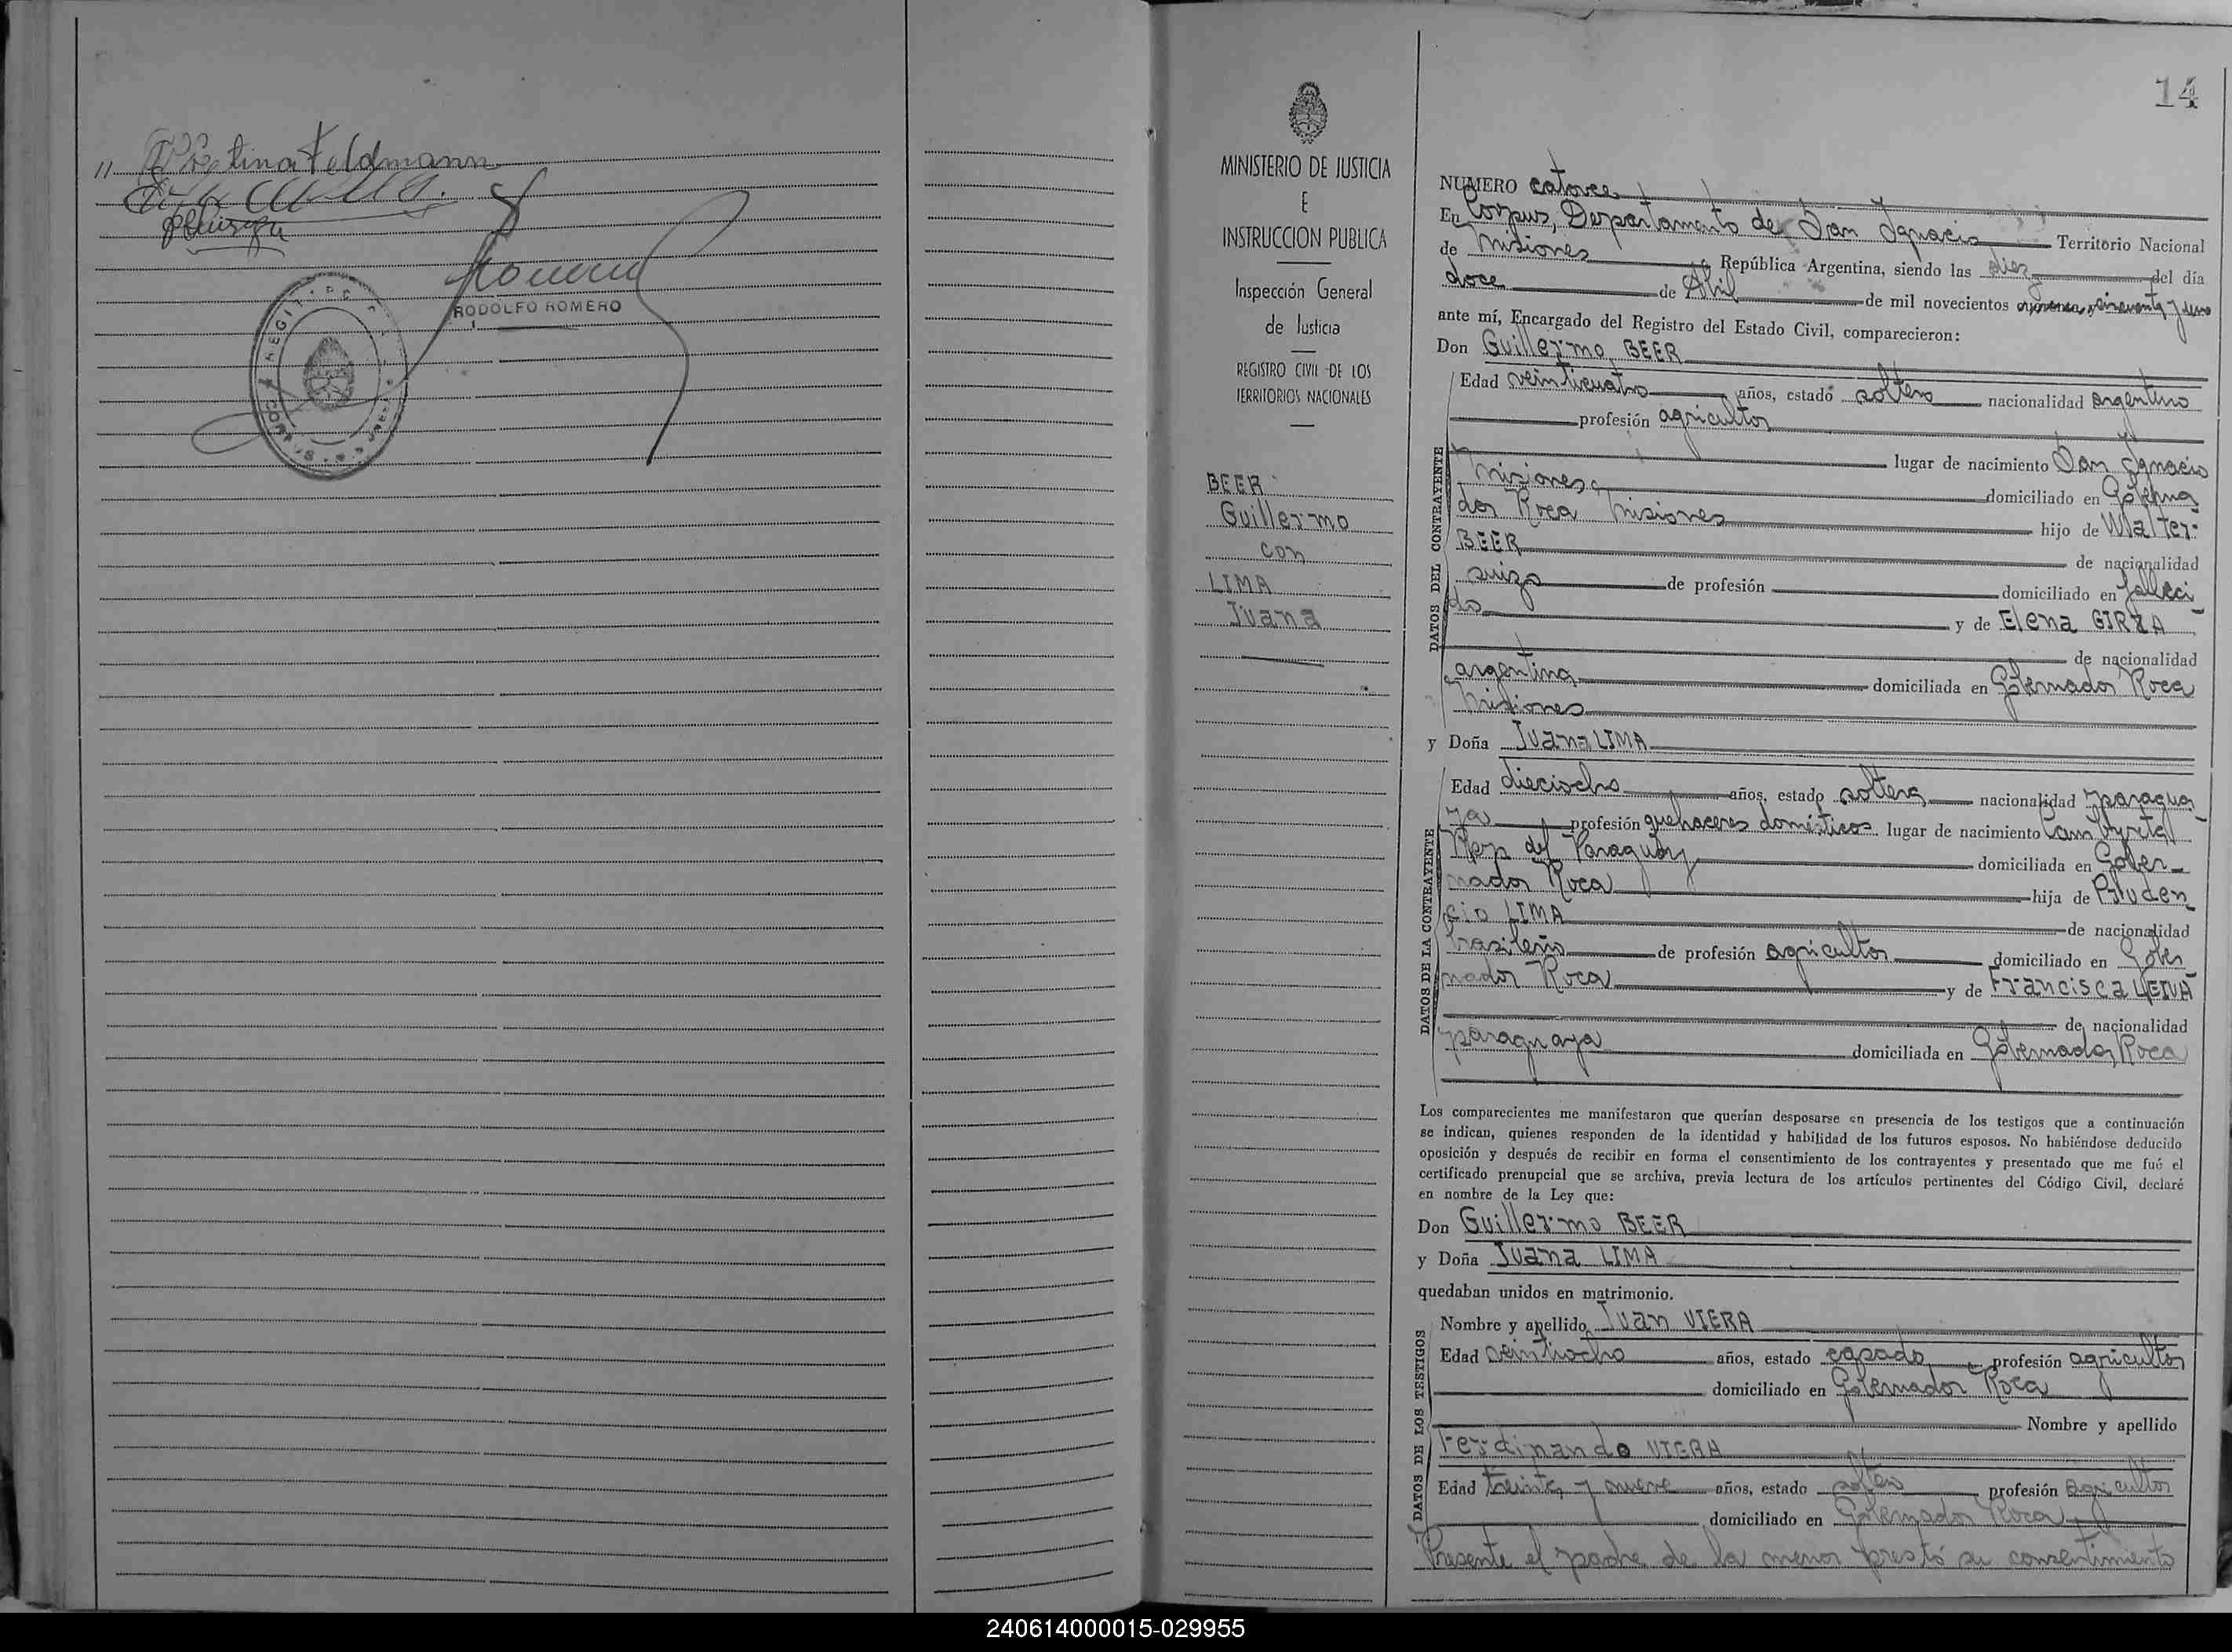 11 Feldmann
Romero
RODOLFO ROMERO
MINISTERIO DE JUSTICIA
E
INSTRUCCION PUBLICA
Inspección General
de Justicia
REGISTRO CIVIL DE LOS
TERRITORIOS NACIONALES
BEER
Guillermo
con
LIMA
Juana
14
NUMERO catorce
En Corpus, Departamento de San Ignacio Territorio Nacional
de Misiones República Argentina, siendo las diez del día
doce de Abril de mil novecientos cincuenta y uno
ante mí, Encargado del Registro del Estado Civil, comparecieron:
Don Guillermo BEER
DATOS DEL CONTRAYENTE
Edad veinticuatro años, estado soltero nacionalidad argentino
profesión agricultor
lugar de nacimiento San Ignacio
Misiones domiciliado en Goberna
dor Roca Misiones hijo de Walter
BEER de nacionalidad
suizo de profesión domiciliado en falleci
do y de Elena
de nacionalidad
argentina domiciliada en Gobernador Roca
Misiones
y Doña Juana LIMA
DATOS DE LA CONTRAYENTE
Edad dieciocho años, estado soltera nacionalidad paragua
ya profesión quehaceres domésticos lugar de nacimiento Cambyretá
Rep del Paraguay domiciliada en Gober-
nador Roca hija de Pruden
cio LIMA de nacionalidad
brasileño de profesión agricultor domiciliado en Gober
nador Roca y de Francisca LEIVA
de nacionalidad
paraguaya domiciliada en Gobernador Roca
Los comparecientes me manifestaron que querían desposarse en presencia de los testigos que a continuación
se indican, quienes responden de la identidad y habilidad de los futuros esposos. No habiéndose deducido
oposición y después de recibir en forma el consentimiento de los contrayentes y presentado que me fué el
certificado prenupcial que se archiva, previa lectura de los artículos pertinentes del Código Civil, declaré
en nombre de la Ley que:
Don Guillermo BEER
y Doña Juana LIMA
quedaban unidos en matrimonio.
DATOS DE LOS TESTIGOS
Nombre y apellido Juan VIERA
Edad veintiocho años, estado casado profesión agricultor
domiciliado en Gobernador Roca
Nombre y apellido
Ferdinando VIERA
Edad treinta y nueve años, estado soltero profesión agricultor
domiciliado en Gobernador Roca
Presente el padre de la menor prestó su consentimiento
240614000015-029955